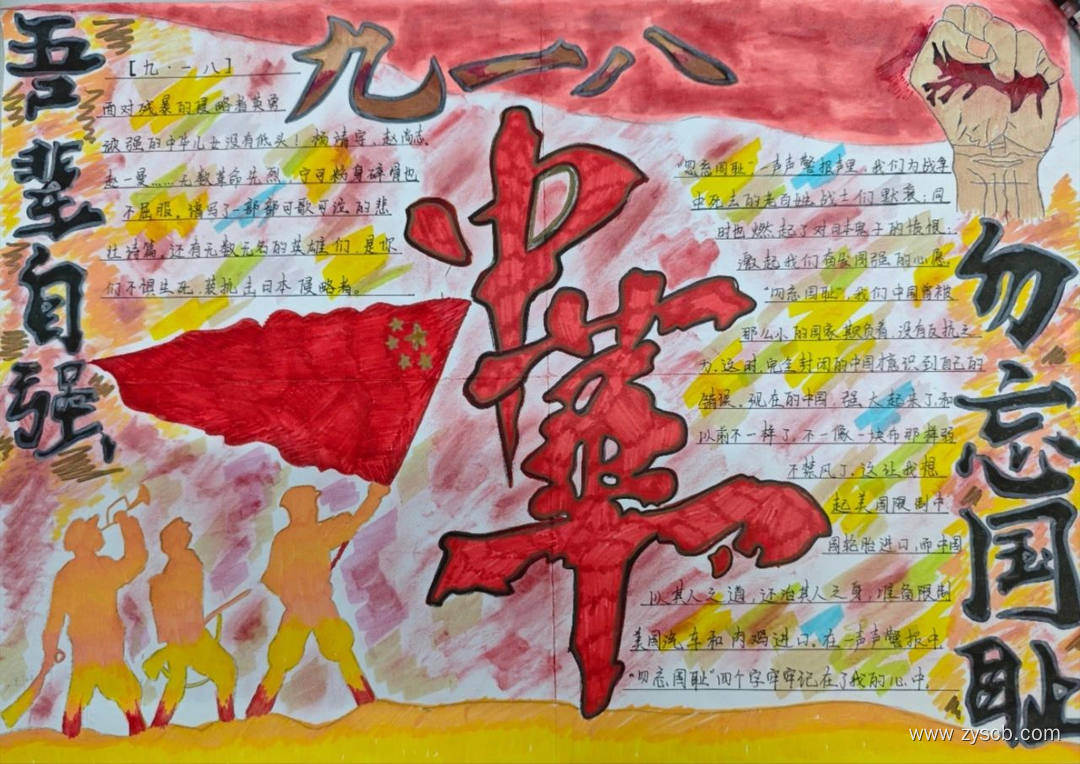 九一八
吾辈自强
【九·一八】
面对残暴的侵略者英勇
顽强的中华儿女没有低头！杨靖宇、赵尚志、
赵一曼……无数革命先烈，宁可粉身碎骨也
不屈服。谱写了一部部可歌可泣的悲
壮诗篇。还有无数无名的英雄们 是你
们不惧生死，英抗击日本侵略者。
中华
"勿忘国耻"一声声警报声里，我们为战争
中死去的老百姓、战士们默哀；同
时也燃起了对日本鬼子的愤恨；
激起我们奋发图强的心愿
"勿忘国耻"，我们中国曾被
那么小的国家欺负着，没有反抗之
力，这时，完全封闭的中国才意识到自己的
错误。现在的中国，强大起来了，和
以前不一样了，不一像一块布那样弱
不禁风了，这让我想
起美国限制中
国轮胎进口，而中国
以其人之道，还治其人之身，准备限制
美国汽车和肉鸡进口。在一声声警报中，
"勿忘国耻"四个字牢牢记在了我的心中。
勿忘国耻
www.zyscb.com